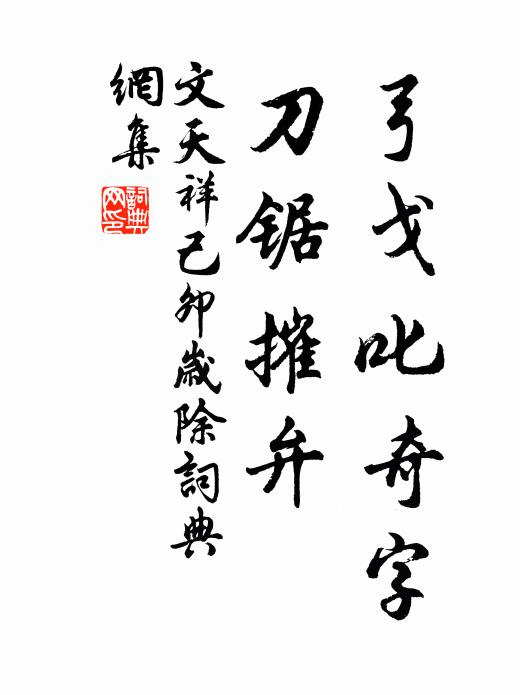 弓戈叱奇字
刀锯摧弁
文天祥己卯歲除詞典
網集
詞典網印